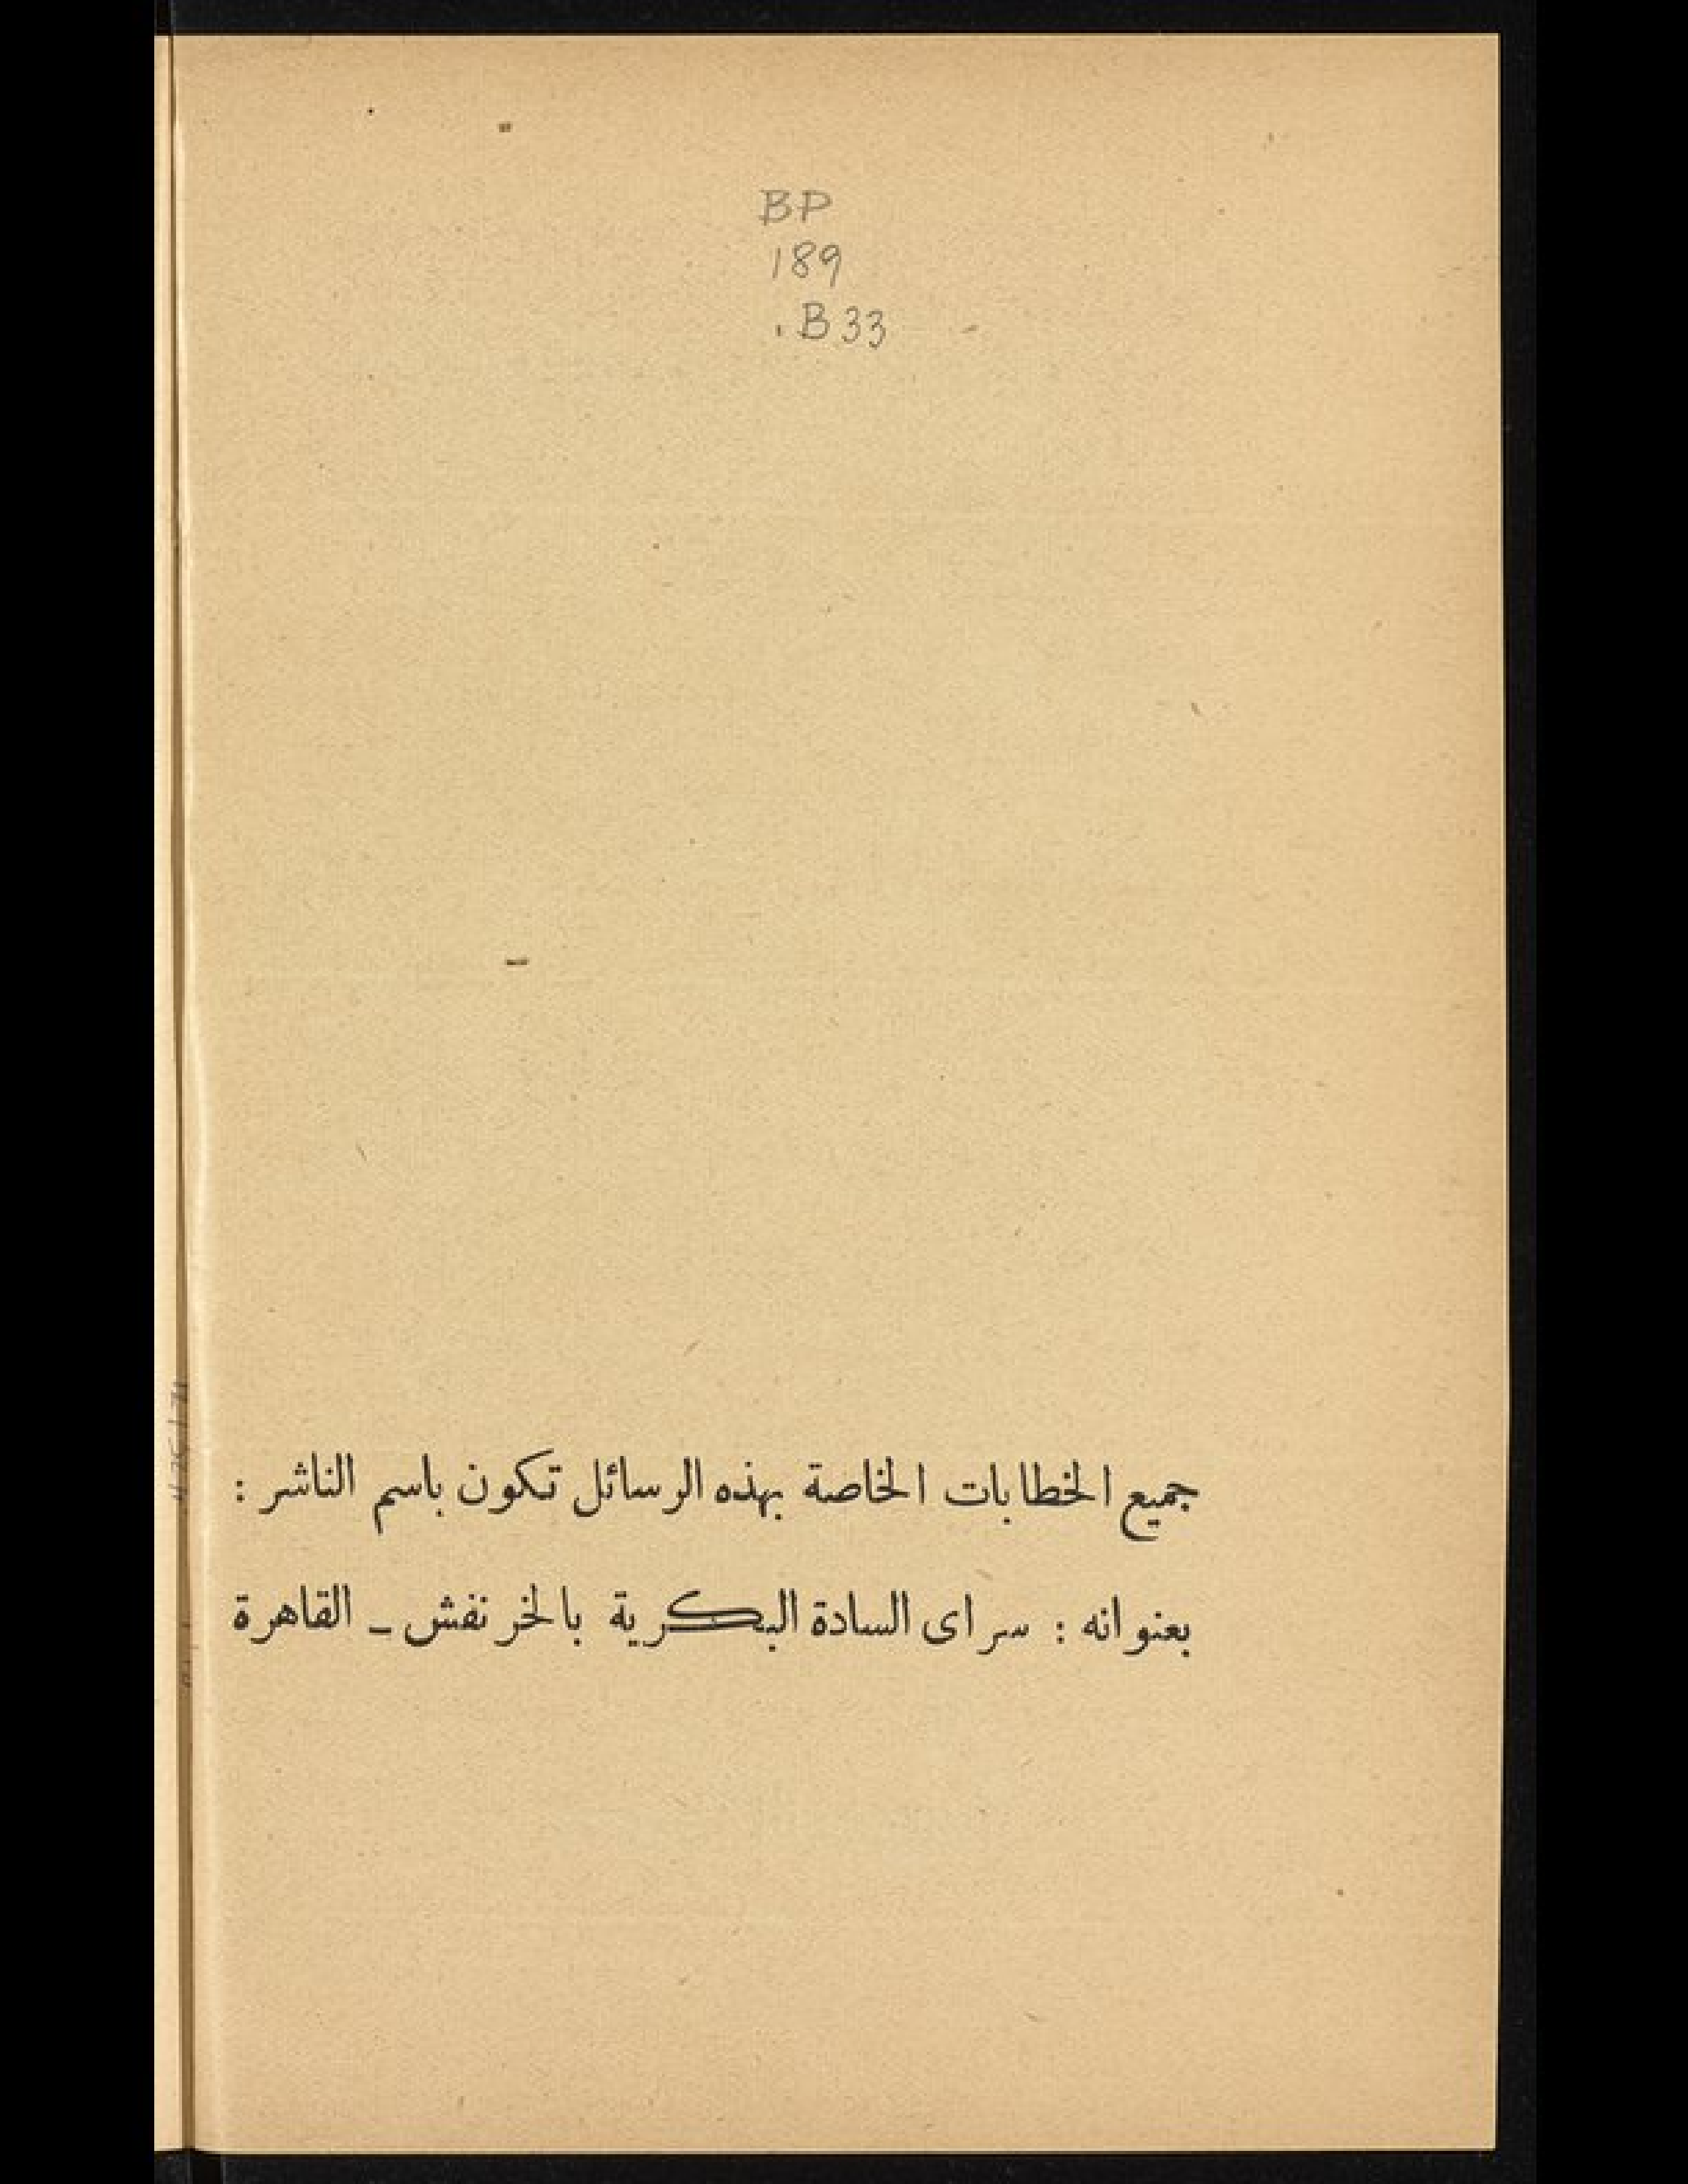 BP
189
.B33
جميع الخطابات الخاصة بهذه الرسائل تكون باسم الناشر :
بعنوانه : سراى السادة البكرية بالخرنفش ــ القاهرة